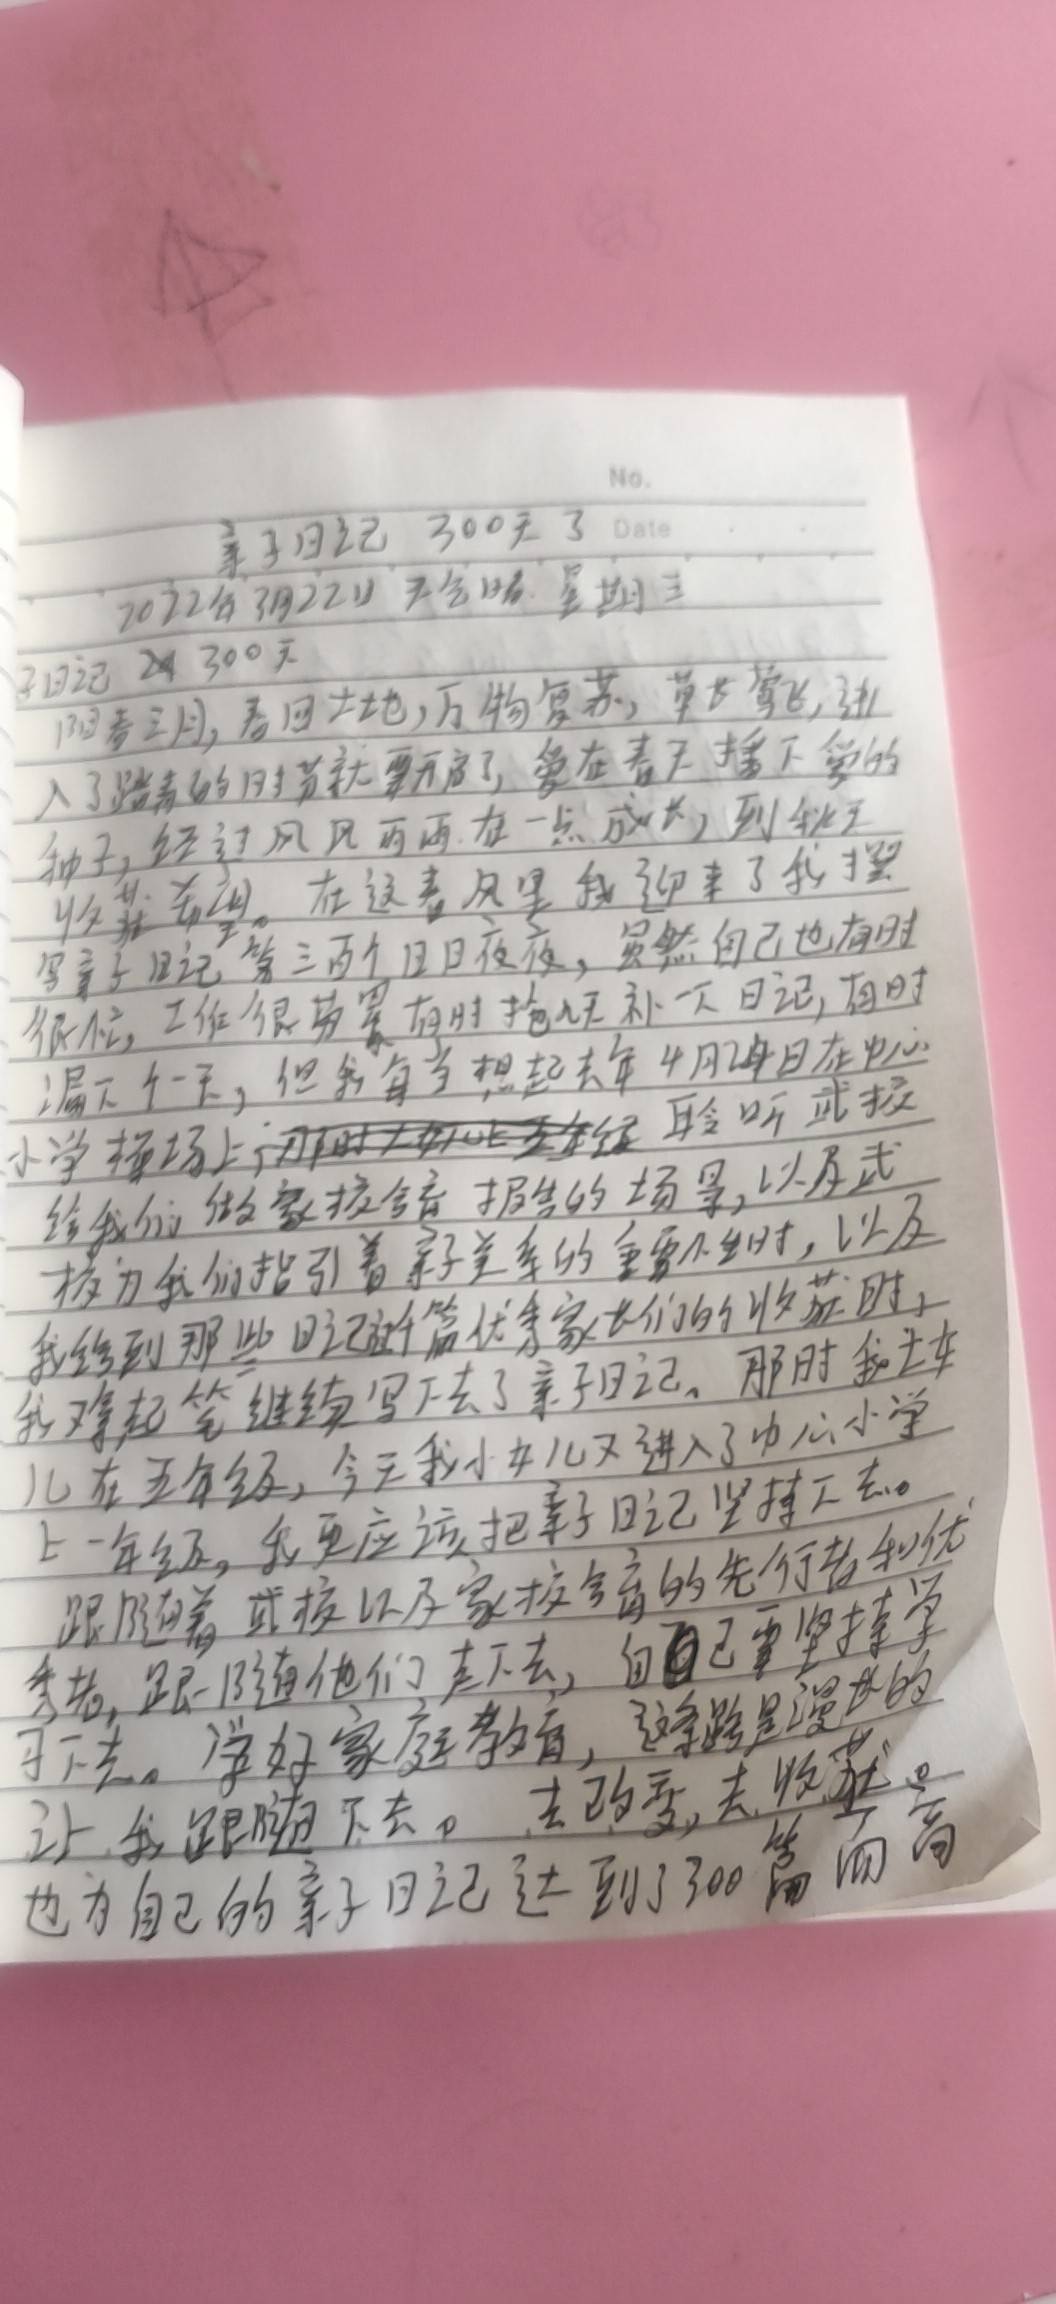 No.
亲子日记 300天了 Date
2022年3月22日 天气晴 星期三
子日记 300天
阳春三月，春回大地，万物复苏，草长莺飞，进
入了踏青的时节就要开启了，爱在春天播下爱的
种子，经过风风雨雨在一点成长，到秋天
收获希望。在这春风里我迎来了我撰
写亲子日记第三百个日日夜夜，虽然自己也有时
很忙，工作很劳累有时拖几天补一下日记，有时
漏下个一天，但我每当想起去年4月 日在中心
小学操场上，聆听武校
给我们做家校合育报告的场景，以及武
校为我们指引着亲子关系的重要 时，以及
我 到那些日记 篇优秀家长们的收获时，
我 起笔继续写下去了亲子日记。那时我大女
儿在五年级，今天我小女儿又进入了中心小学
上一年级，我更应该把亲子日记坚持下去。
跟随着武校以及家校合育的先行者和优
秀者，跟随他们走下去，自己要坚持学
习下去。学好家庭教育，这条路是漫长的
让我跟随下去。去改变，去收获。
也为自己的亲子日记达到了300篇而高